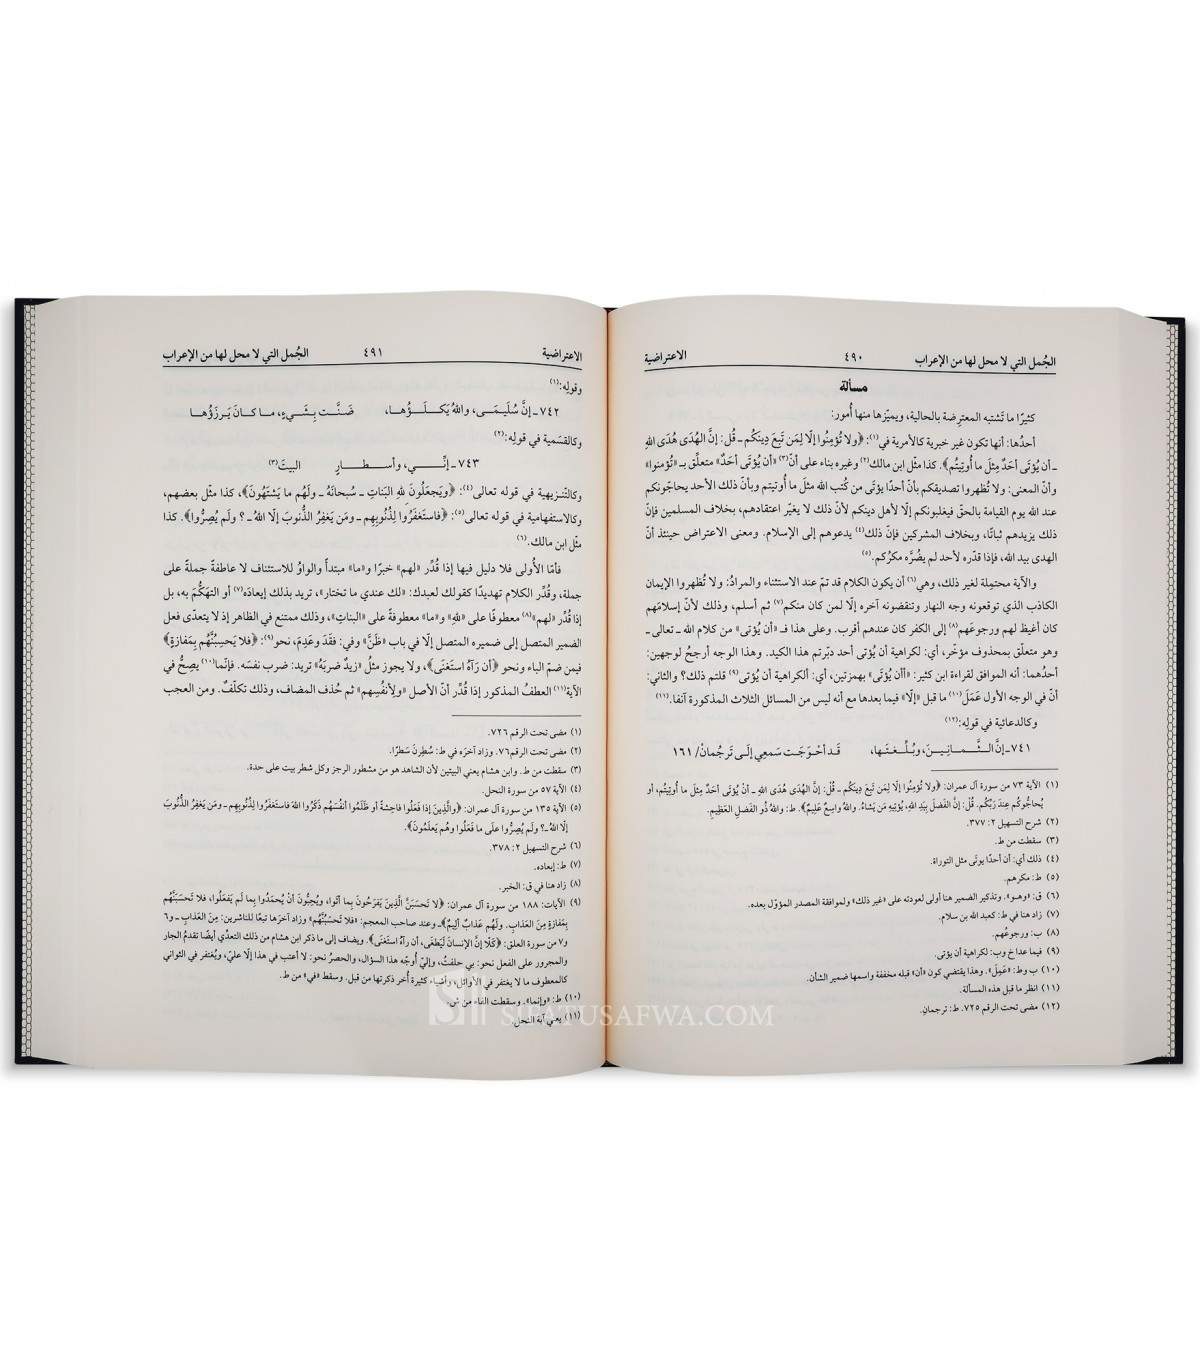 الجُمل التي لا محل لها من الإعراب ٤٩٠ الاعتراضية
مسألة
كثيرًا ما تَشتبه المعترِضة بالحالية، ويميّزها منها أُمور:
أحدُها: أنها تكون غير خبرية كالأمرية في(١): ﴿ولا تُؤمِنُوا إلّا لِمَن تَبِعَ دِينَكُم ـ قُل: إنَّ الهُدَى هُدَى اللهِ
ـ أن يُؤتَى أحَدٌ مِثلَ ما أُوتِيتُم﴾. كذا مثّل ابن مالك(٢) وغيره بناء على أنّ(٣) «أن يُؤتَى أحدٌ» متعلِّق بـ «تُؤمنوا»
وأنّ المعنى: ولا تُظهروا تصديقكم بأنّ أحدًا يؤتَى من كُتب الله مثلَ ما أُوتيتم وبأنّ ذلك الأحد يحاجّونكم
عند الله يوم القيامة بالحقّ فيغلبونكم إلّا لأهل دينكم لأنّ ذلك لا يغيّر اعتقادهم، بخلاف المسلمين فإنّ
ذلك يزيدهم ثباتًا، وبخلاف المشركين فإنّ ذلك(٤) يدعوهم إلى الإسلام. ومعنى الاعتراض حينئذ أنّ
الهدى بيد الله، فإذا قدّره لأحد لم يضُرَّه مكرُكم.(٥)
والآية محتمِلة لغير ذلك، وهي(٦) أن يكون الكلام قد تمّ عند الاستثناء والمرادُ: ولا تُظهروا الإيمان
الكاذب الذي توقعونه وجه النهار وتنقضونه آخره إلّا لمن كان منكم(٧) ثم أسلم، وذلك لأنّ إسلامَهم
كان أغيظ لهم ورجوعَهم(٨) إلى الكفر كان عندهم أقرب. وعلى هذا فـ «أن يُؤتى» من كلام الله ـ تعالى ـ
وهو متعلّق بمحذوف مؤخّر، أي: لكراهية أن يُؤتى أحد دبّرتم هذا الكيد. وهذا الوجه أرجحُ لوجهين:
أحدُهما: أنه الموافق لقراءة ابن كثير: «أأن يُؤتَى» بهمزتين، أي: ألكراهية أن يُؤتى(٩) قلتم ذلك؟ والثاني:
أنّ في الوجه الأول عَمَلَ(١٠) ما قبل «إلّا» فيما بعدها مع أنه ليس من المسائل الثلاث المذكورة آنفا.(١١)
وكالدعائية في قولِه:(١٢)
٧٤١ـ إنَّ الـثَّـمـانِـيـنَ، وبُـلِّـغـتَـها، قَـد أحْـوَجَـت سَـمعِـي إلَـى تَـرجُمانْ/ ١٦١
(١) الآية ٧٣ من سورة آل عمران: ﴿ولا تُؤمِنُوا إلّا لِمَن تَبِعَ دِينَكُم ـ قُل: إنَّ الهُدَى هُدَى اللهِ ـ أنْ يُؤتَى أحَدٌ مِثلَ ما أُوتِيتُم، أو
يُحاجُّوكُم عِندَ رَبِّكُم. قُل: إنَّ الفَضلَ بِيَدِ اللهِ، يُؤتِيهِ مَن يَشاءُ. واللهُ واسِعٌ عَلِيمٌ﴾. ط: واللهُ ذُو الفَضلِ العَظِيمِ.
(٢) شرح التسهيل ٢: ٣٧٧.
(٣) سقطت من ط.
(٤) ذلك أي: أن أحدًا يوتَى مثل التوراة.
(٥) ط: مكرهم.
(٦) ق: «وهو». وتذكير الضمير هنا أولى لعودته على «غير ذلك» ولموافقة المصدر المؤوّل بعده.
(٧) زاد هنا في ط: كعبد الله بن سلام.
(٨) ب: ورجوعُهم.
(٩) فيما عدا خ وب: لكراهية أن يؤتى.
(١٠) ب وط: «عَمِلَ». وهذا يقتضي كون «أن» قبله مخففة واسمها ضمير الشأن.
(١١) انظر ما قبل هذه المسألة.
(١٢) مضى تحت الرقم ٧٢٥. ط: ترجمانِ.
الاعتراضية ٤٩١ الجُمل التي لا محل لها من الإعراب
وقولِه:(١)
٧٤٢ـ إنَّ سُلَـيـمَـى، واللهُ يَكـلَـؤُهـا، ضَـنَّـت بِـشَـيءٍ، مـا كـانَ يَـرزَؤُهـا
وكالقسَمية في قولِه:(٢)
٧٤٣ـ إنِّـــي، وأسـطـــارٍ البيتَ(٣)
وكالتّنـزيهية في قوله تعالى(٤): ﴿ويَجعَلُونَ للهِ البَناتِ ـ سُبحانَهُ ـ ولَهُم ما يَشتَهُونَ﴾، كذا مثّل بعضهم،
وكالاستفهامية في قوله تعالى(٥): ﴿فاستَغفَرُوا لِذُنُوبِهِم ـ ومَن يَغفِرُ الذُّنوبَ إلّا اللهُ ـ ؟ ولَم يُصِرُّوا﴾. كذا
مثّل ابن مالك.(٦)
فأمّا الأُولى فلا دليل فيها إذا قُدِّر «لهم» خبرًا و«ما» مبتدأً والواوُ للاستئناف لا عاطفةً جملةً على
جملة، وقُدِّر الكلام تهديدًا كقولك لعبدك: «لك عندي ما تختار»، تريد بذلك إيعادَه(٧) أو التهكُّمَ به، بل
إذا قُدِّر «لهم»(٨) معطوفًا على «للهِ» و«ما» معطوفةً على «البناتِ»، وذلك ممتنع في الظاهر إذ لا يتعدّى فعل
الضمير المتصل إلى ضميره المتصل إلّا في باب «ظَنَّ» وفي: فقَدَ وعَدِمَ، نحو(٩): ﴿فلا يَحسِبُنَّهُم بِمَفازةٍ﴾
فيمن ضمّ الباء ونحو ﴿أن رَآهُ استَغنَى﴾، ولا يجوز مثلُ «زيدٌ ضربَهُ» تريد: ضرب نفسَه. فإنّما(١٠) يَصِحُّ في
الآية(١١) العطفُ المذكور إذا قُدِّرَ أنّ الأصل «ولِأنفُسِهم» ثم حُذف المضاف، وذلك تكلّفٌ. ومن العجب
(١) مضى تحت الرقم ٧٢٦.
(٢) مضى تحت الرقم ٧٦. وزاد آخرَه في ط: سُطِرنَ سَطرًا.
(٣) سقطت من ط. وابن هشام يعني البيتين لأن الشاهد هو من مشطور الرجز وكل شطر بيت على حدة.
(٤) الآية ٥٧ من سورة النحل.
(٥) الآية ١٣٥ من سورة آل عمران: ﴿والَّذِينَ إذا فَعَلُوا فاحِشةً أو ظَلَمُوا أنفُسَهُم ذَكَرُوا اللهَ فاستَغفَرُوا لِذُنُوبِهِم ـ ومَن يَغفِرُ الذُّنُوبَ
إلّا اللهُ ـ؟ ولَم يُصِرُّوا علَى ما فَعَلُوا وهُم يَعلَمُونَ﴾.
(٦) شرح التسهيل ٢: ٣٧٨.
(٧) ط: إبعاده.
(٨) زاد هنا في ق: الخبر.
(٩) الآيات: ١٨٨ من سورة آل عمران: ﴿لا تَحسَبَنَّ الَّذِينَ يَفرَحُونَ بِما أتَوا، ويُحِبُّونَ أنْ يُحمَدُوا بِما لَم يَفعَلُوا، فلا تَحسَبَنَّهُم
بِمَفازةٍ مِنَ العَذابِ. ولَهُم عَذابٌ ألِيمٌ﴾ـ وعند صاحب المعجم: «فلا تَحسَبُنَّهُم» وزاد آخرَها تبعًا للناشرين: مِنَ العَذابِ ـ و٦
و٧ من سورة العلق: ﴿كَلّا إنَّ الإنسانَ لَيَطغَى، أن رَآهُ استَغنَى﴾. ويضاف إلى ما ذكر ابن هشام من ذلك التعدّي أيضًا تقدمُ الجار
والمجرور على الفعل نحو: بي حلفتُ، وإليّ أُوجّه هذا السؤال، والحصرُ نحو: لا أعتب في هذا إلّا عليّ، ويُغتفر في الثواني
كالمعطوف ما لا يغتفر في الأوائل، وأشياء كثيرة أُخر ذكرتها من قبل. وسقط «في» من ط.
(١٠) ط: «وإنما». وسقطت الفاء من ش.
(١١) يعني آية النحل.
SIFATUSAFWA.COM